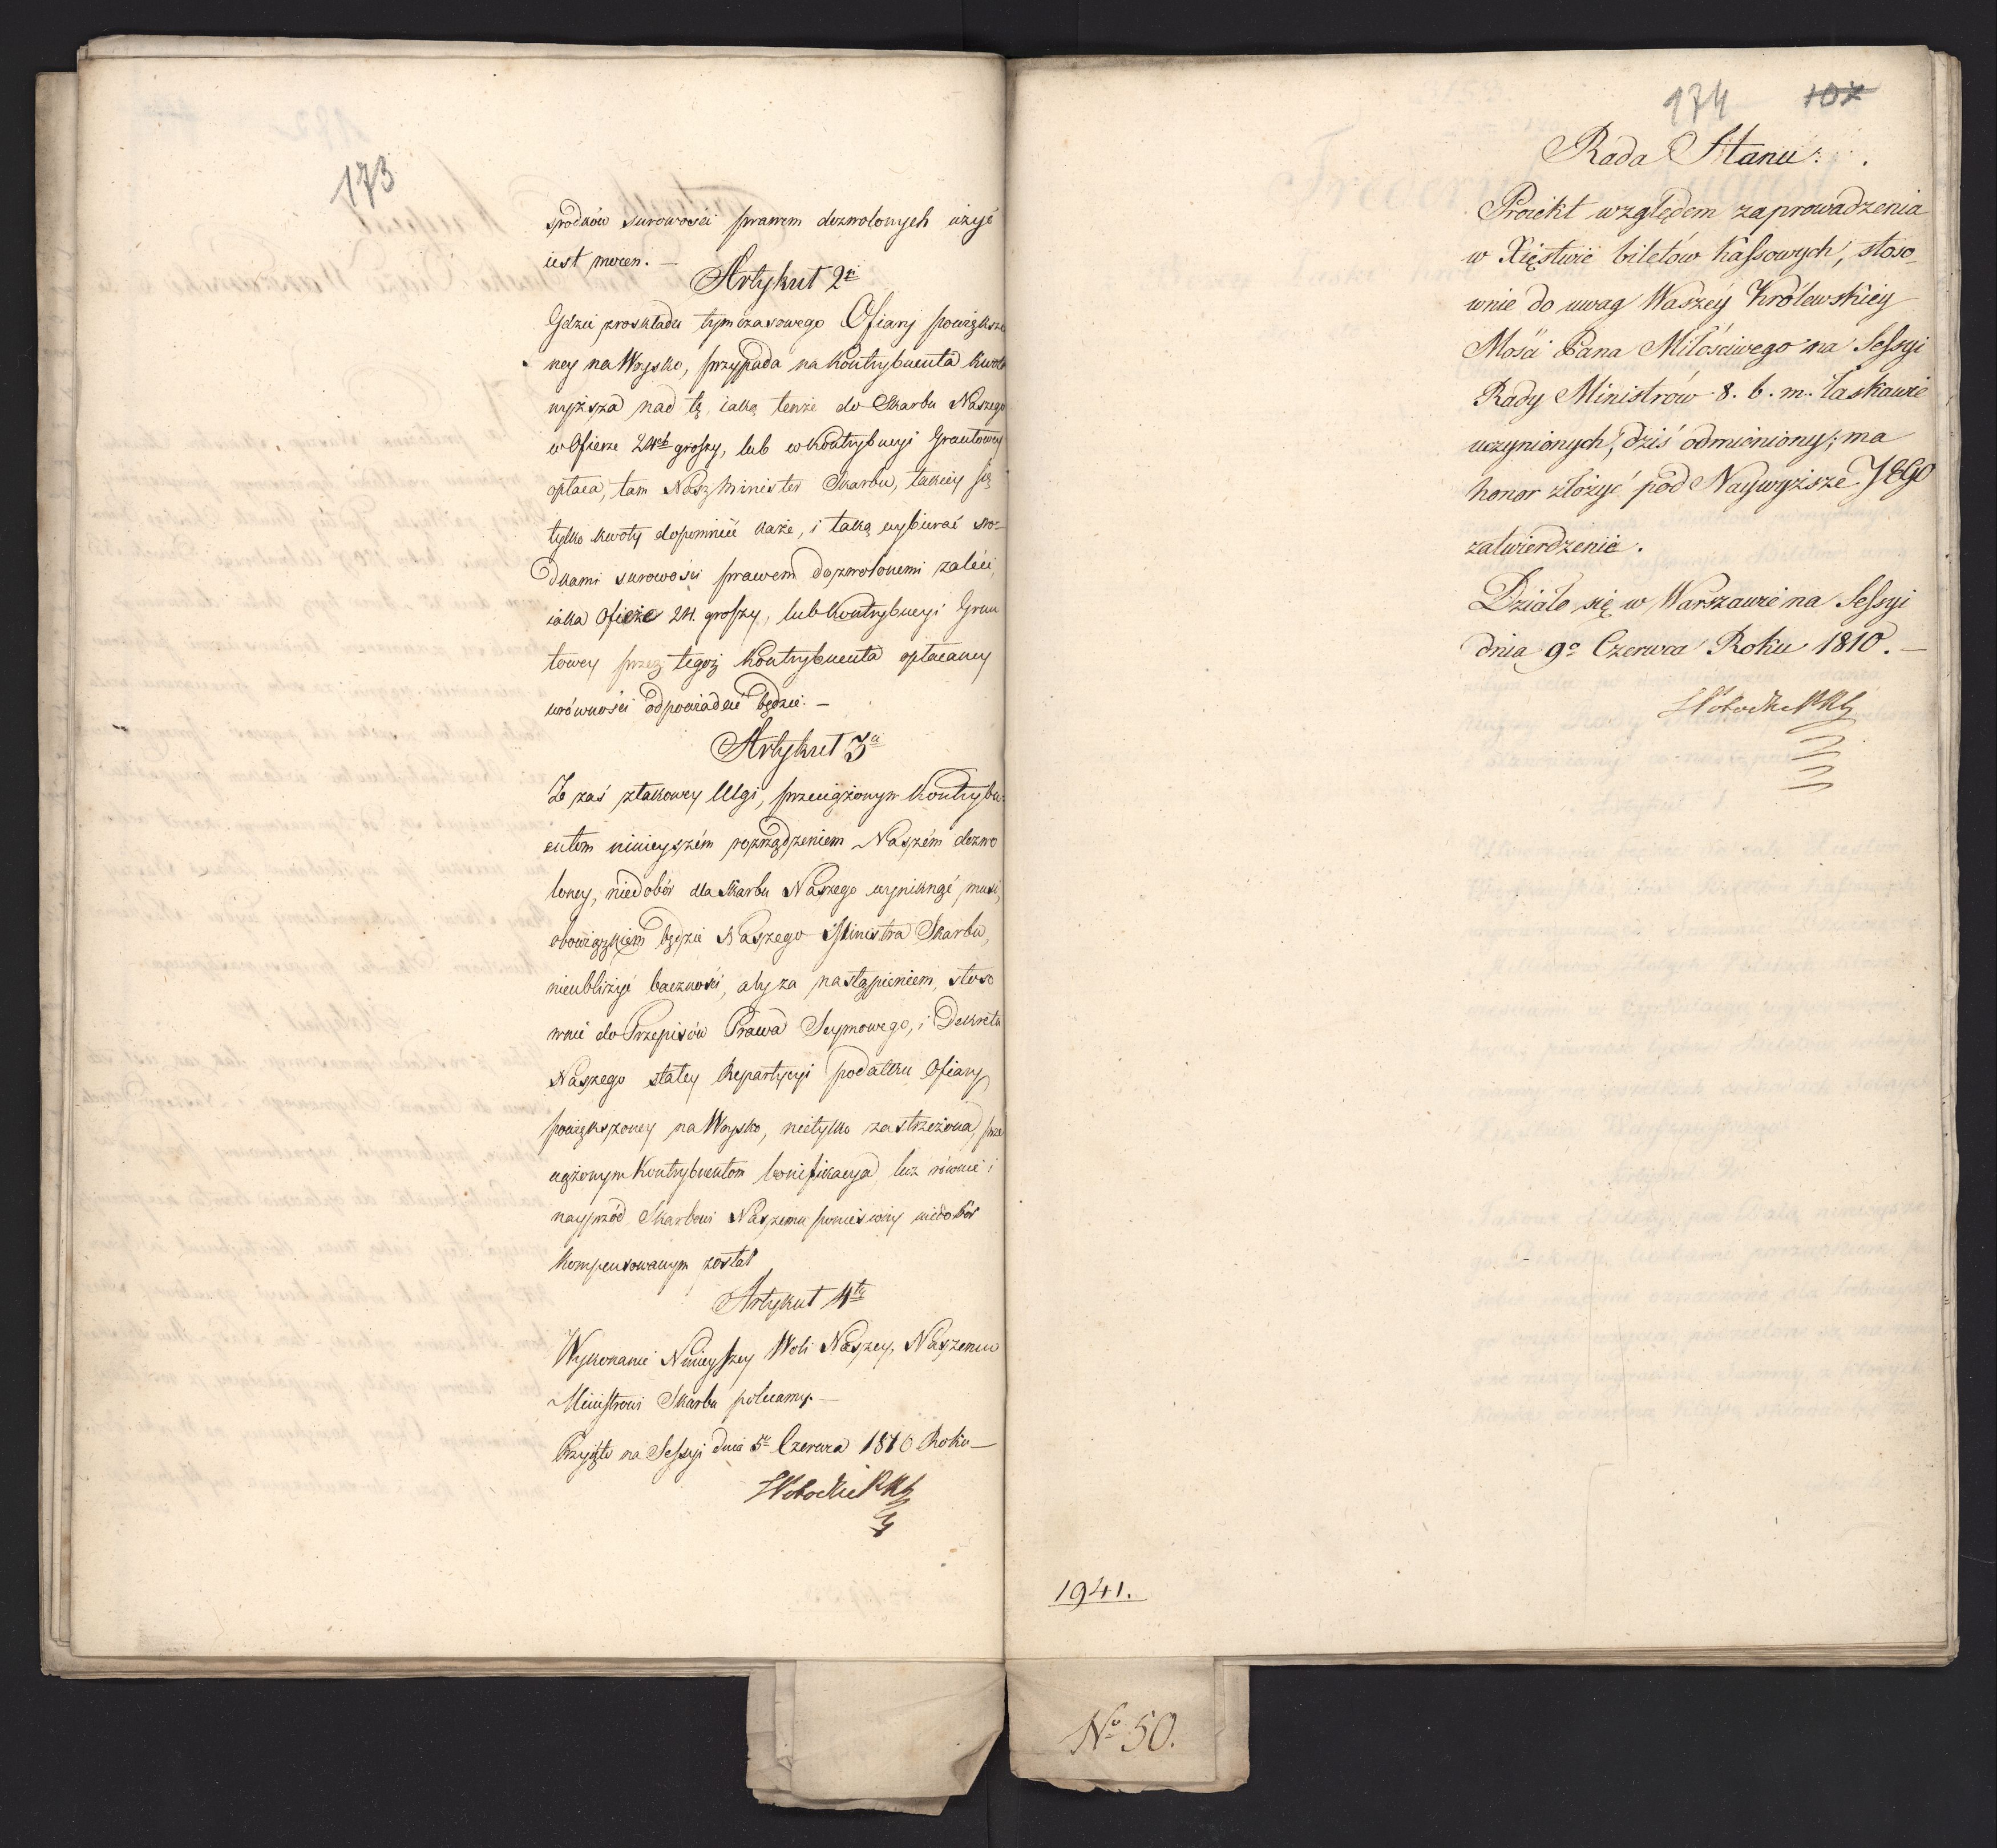 173
srodków surowosci prawem dozwolonych użyć
iest mocen. —
Artykuł 2gi
Gdzie zroskładu tymczasowego Ofiary powiększo
ney na Woysko, przypada na Kontrybuenta kwota
wyższa nad tę, iaką tenże do Skarbu Naszego
w Ofierze 24ch groszy, lub w Kontrybucyi Gruntowey
opłaca, tam Nasz Minister Skarbu, takiey się
tylko kwoty dopomnieć każe, i taką wybierać sro-
dkami surowości prawem dozwolonemi zaleci,
iaka Ofierze 24. groszy, lub Kontrybucyi Grun
towey przez tegoż Kontrybuenta opłacaney
wrówności odpowiadać będzie. —
Artykuł 3ci
Że zaś ztakowey Ulgi, przeciążonym Kontrybu-
entom ninieyszém rozrządzeniem Naszém dozwo
loney, niedobór dla Skarbu Naszego wyniknąć musi,
obowiązkiem będzie Naszego Ministra Skarbu,
nieubliżyć baczności, aby za nastąpieniem, stoso
wnie do Przepisów Prawa Seymowego, i Dekretu
Naszego stałey Repartycyi podatku Ofiary
powiększoney na Woysko, nietylko zastrzeżona, prze
ciążonym Kontrybuentom bonifikacya lecz równie i
nayprzód Skarbowi Naszemu poniesiony niedobór
kompensowanym został
Artykuł 4ty
Wykonanie Ninieyszey Woli Naszey, Naszemu
Ministrowi Skarbu polecamy. —
Przyięto na Sessyi dnia 5o Czerwca 1810 Roku —
174 107
Rada Stanu.
Proiekt względem zaprowadzenia
w Xięstwie biletów Kassowych, stoso_
wnie do uwag Waszéy Królewskiéy
Mości Pana Miłościwego na Sessyi
Rady Ministrów 8. b. m. łaskawie
uczynionych, dziś odmieniony, ma
honor złożyć pod Naywyższe JEGO
zatwierdzenie.
Działo się w Warszawie na Sessyi
dnia 9o Czerwca Roku 1810. —
1941.
No 50.